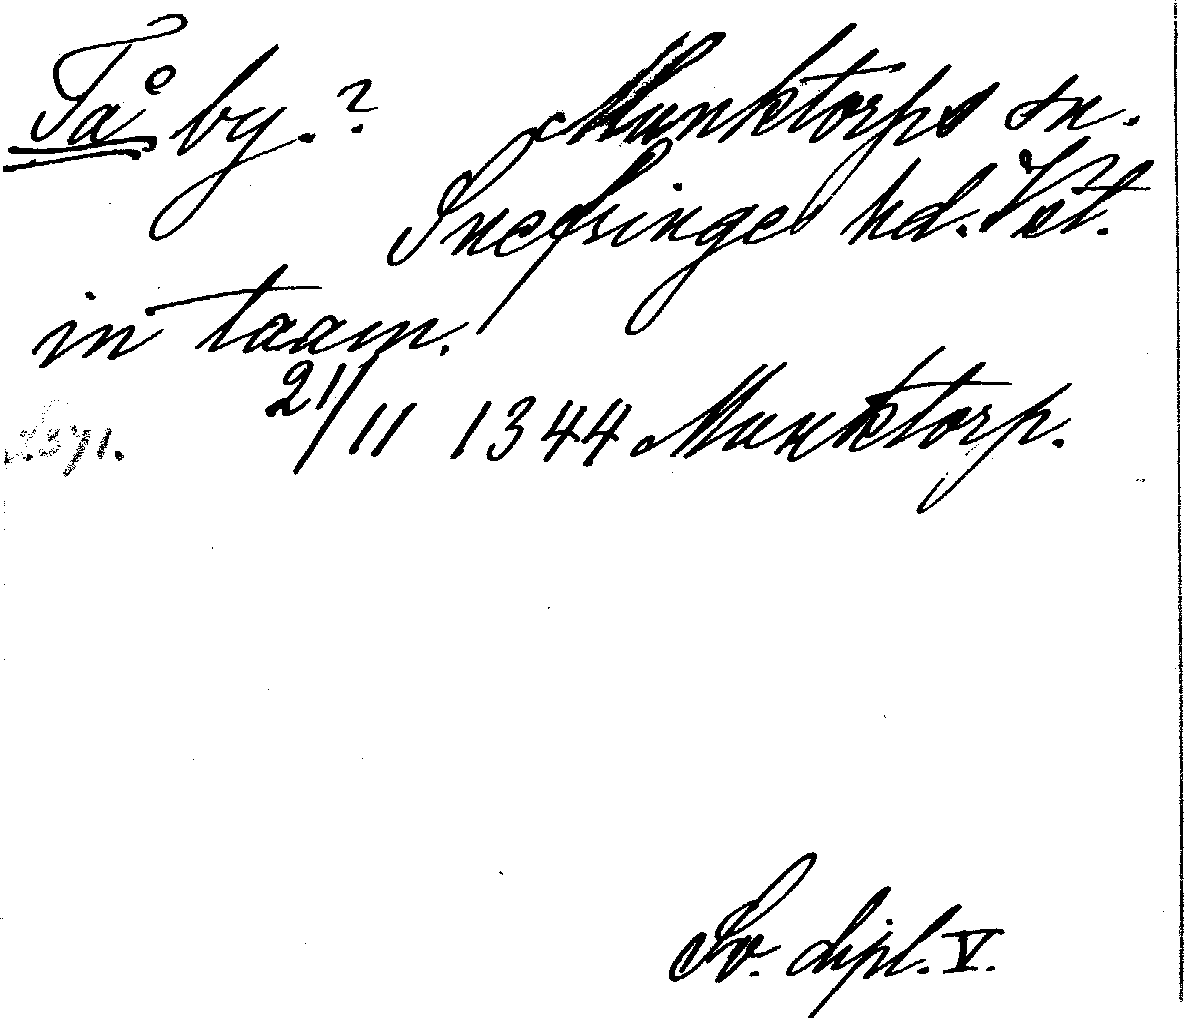 Tå by.? Munktorps sn.
Snefringe hd. Vstl.
in taam.
21/11 1344 Munktorp.
Sv. dipl. V.